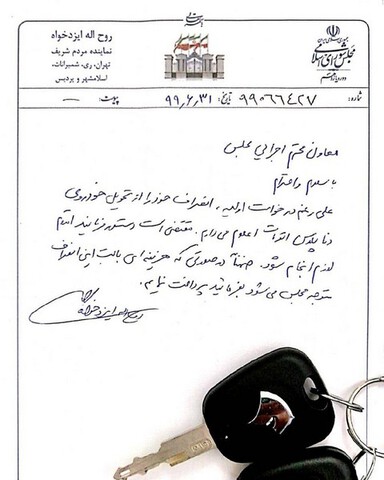 روح اله ایزدخواه
نماینده مردم شریف
تهران، ری، شمیرانات،
اسلامشهر و پردیس
جمهوری اسلامی ایران
مجلس شورای اسلامی
دوره یازدهم
شماره: ۹۹۰۶۶۴۲۷ تاریخ: ۹۹,۶,۳۱ پیوست: —
معاون محترم اجرایی مجلس
با سلام و احترام
علی رغم درخواست اولیه، انصراف خود را از تحویل خودروی
دنا پلاس اتومات اعلام می دارم. مقتضی است دستور فرمایید اقدام
لازم انجام شود. ضمناً در صورتی که هزینه ای بابت این انصراف
متوجه مجلس می شود بفرمایید پرداخت نمایم.
روح اله ایزدخواه